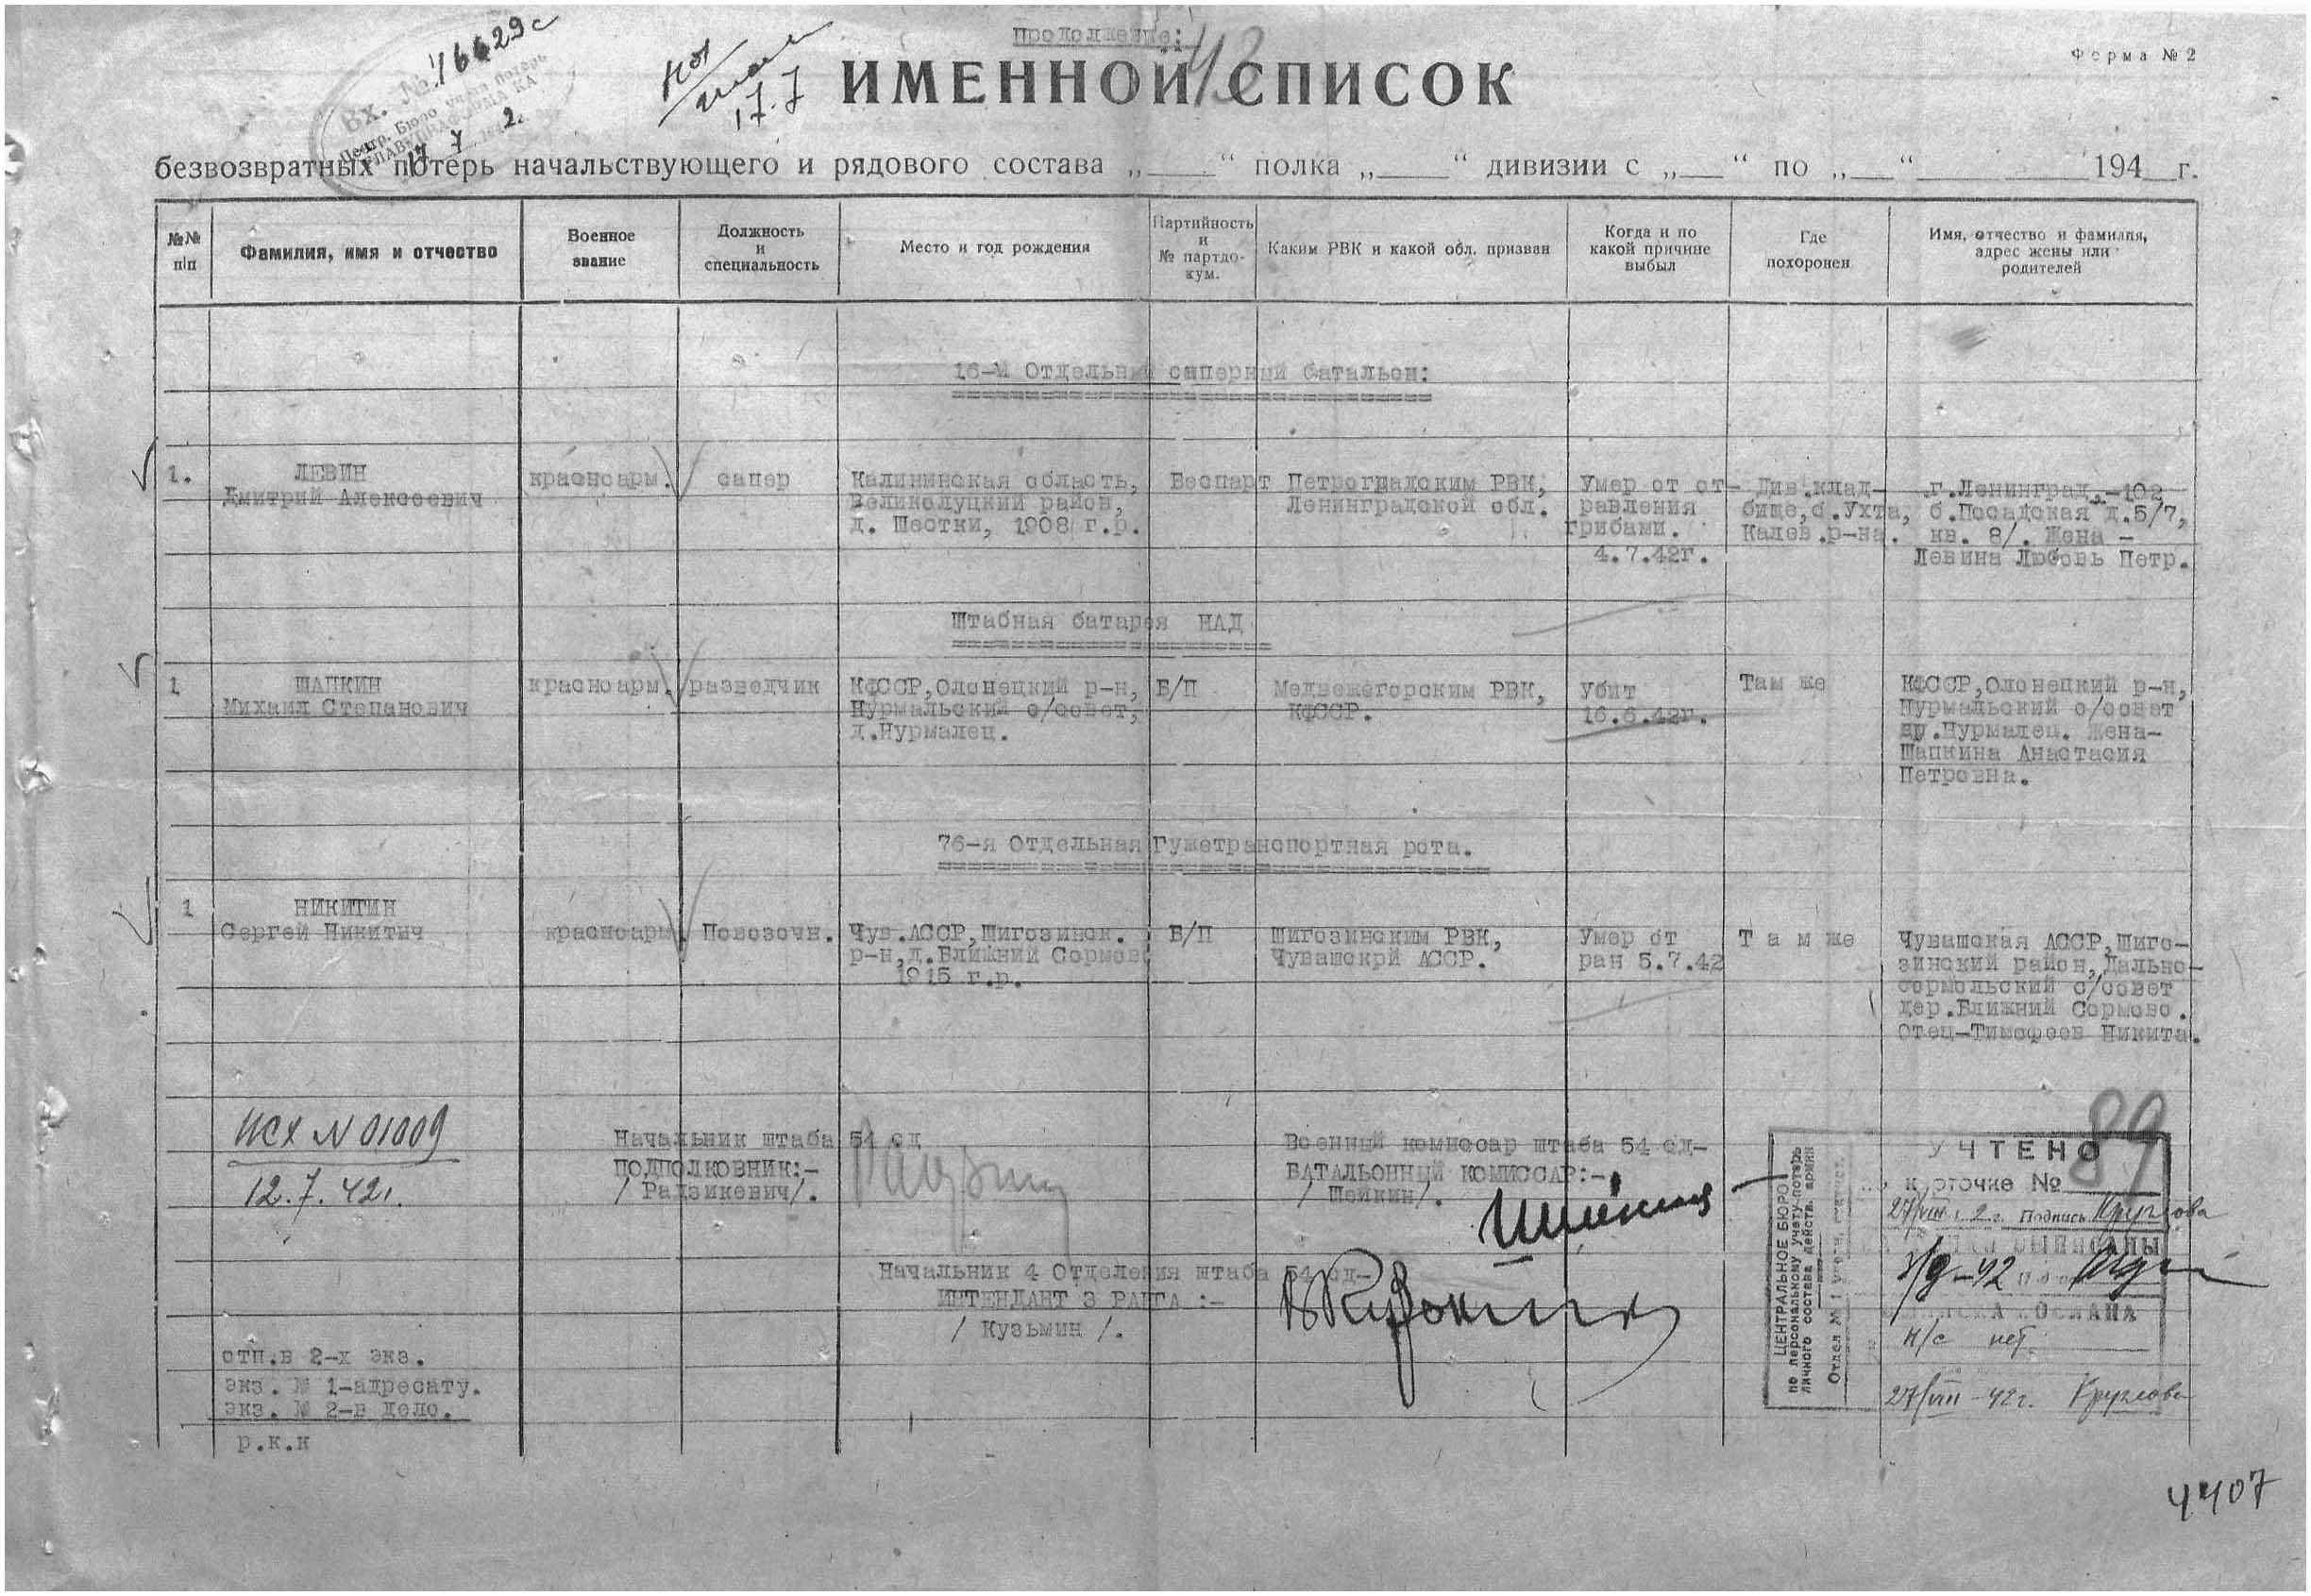 Продолжение:
Форма № 2
Вх. № 46629с
Центр. Бюро учета потерь
17 7 2
17.7
43
ИМЕННОЙ СПИСОК
безвозвратных потерь начальствующего и рядового состава „____“ полка „____“ дивизии с „___“ по „___“ 194__г.
№№ п/п
Фамилия, имя и отчество
Военное звание
Должность и специальность
Место и год рождения
Партийность и № партдокум.
Каким РВК и какой обл. призван
Когда и по какой причине выбыл
Где похоронен
Имя, отчество и фамилия, адрес жены или родителей
16-й Отдельный саперный батальон:
1. ЛЕВИН
Дмитрий Алексеевич
красноарм.
сапер
Калининская область,
Великолуцкий район,
д. Шестки, 1908 г.р.
Беспарт
Петроградским РВК,
Ленинградской обл.
Умер от от-
равления
грибами.
4.7.42г.
Див.клад-
бище, с.Ухта,
Калев.р-на.
г.Ленинград,-102
б.Посадская д.5/7,
кв. 8/. Жена -
Левина Любовь Петр.
Штабная батарея НАД
1 ШАПКИН
Михаил Степанович
красноарм.
разведчик
КФССР,Олонецкий р-н,
Нурмальский с/совет,
д.Нурмалец.
Б/П
Медвежегорским РВК,
КФССР.
Убит
16.6.42г.
Там же
КФССР,Олонецкий р-н,
Нурмальский с/совет
др.Нурмалец. Жена-
Шапкина Анастасия
Петровна.
76-я Отдельная Гужетранспортная рота.
1 НИКИТИН
Сергей Никитич
красноарм.
Повозочн.
Чув.АССР,Шигозинск.
р-н,д.Ближний Сормово
1915 г.р.
Б/П
Шигозинским РВК,
Чувашскрй АССР.
Умер от
ран 5.7.42
Т а м же
Чувашская АССР,Шиго-
зинский район,Дально-
сормольский с/совет
дер.Ближний Сормово.
Отец-Тимофеев Никита.
исх N 01009
12.7.42г.
Начальник штаба 54 сд
ПОДПОЛКОВНИК:-
/ Радзикевич/.
Военный комиссар штаба 54 сд-
БАТАЛЬОННЫЙ КОМИССАР:-
/ Шейкин/.
Начальник 4 Отделения штаба 54 сд-
ИНТЕНДАНТ 3 РАНГА :-
/ Кузьмин /.
отп.в 2-х экз.
экз. № 1-адресату.
экз. № 2-в дело.
р.к.н
ЦЕНТРАЛЬНОЕ БЮРО
по персональному учету потерь
личного состава действ. армии
Отдел № 1
УЧТЕНО
карточке № 89
27/VIII 2 г. Подпись Круглова
ВЫПИСАНЫ
3/9-42
ПОСЛАНА
н/с нет
27/VIII-42г. Круглова
4407